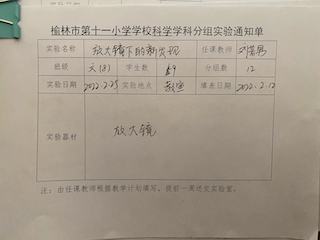 榆林市第十一小学学校科学学科分组实验通知单
实验名称 放大镜下的新发现 任课教师
班级 六(8) 学生数 49 分组数 12
实验日期 2022.2.25 实验地点 教室 填表日期 2022.2.12
实验器材 放大镜
注：由任课教师根据教学计划填写，提前一周送交实验室。